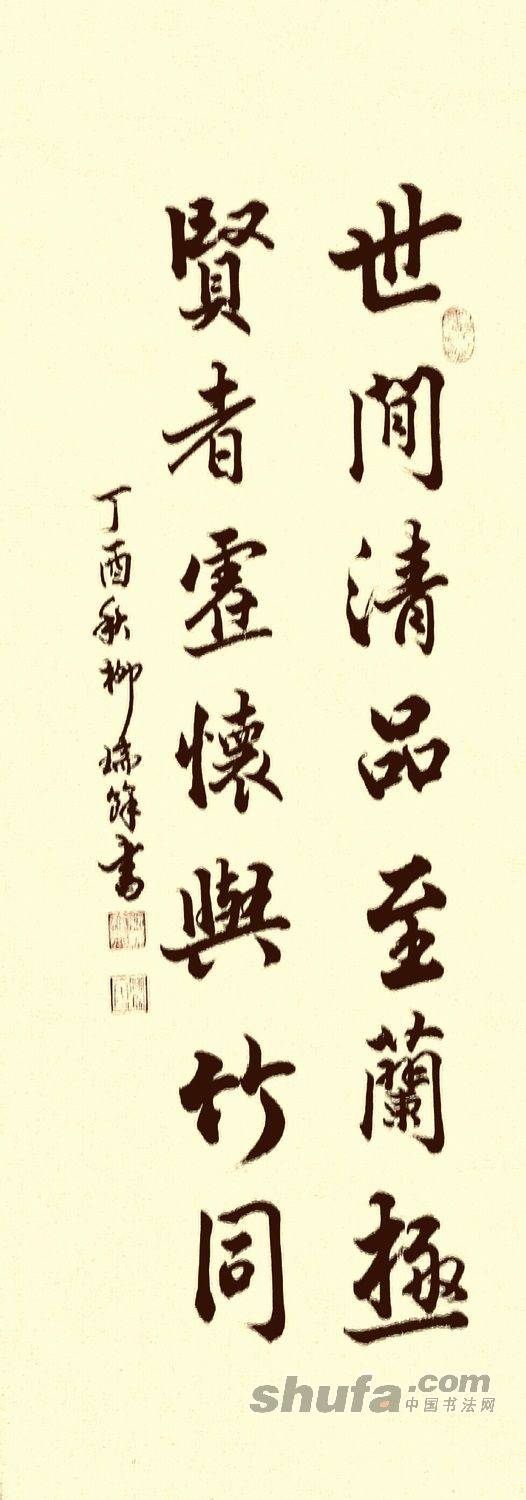 世間清品至蘭極
賢者虛懷與竹同
丁酉秋柳瑞雪書
shufa.com
中国书法网